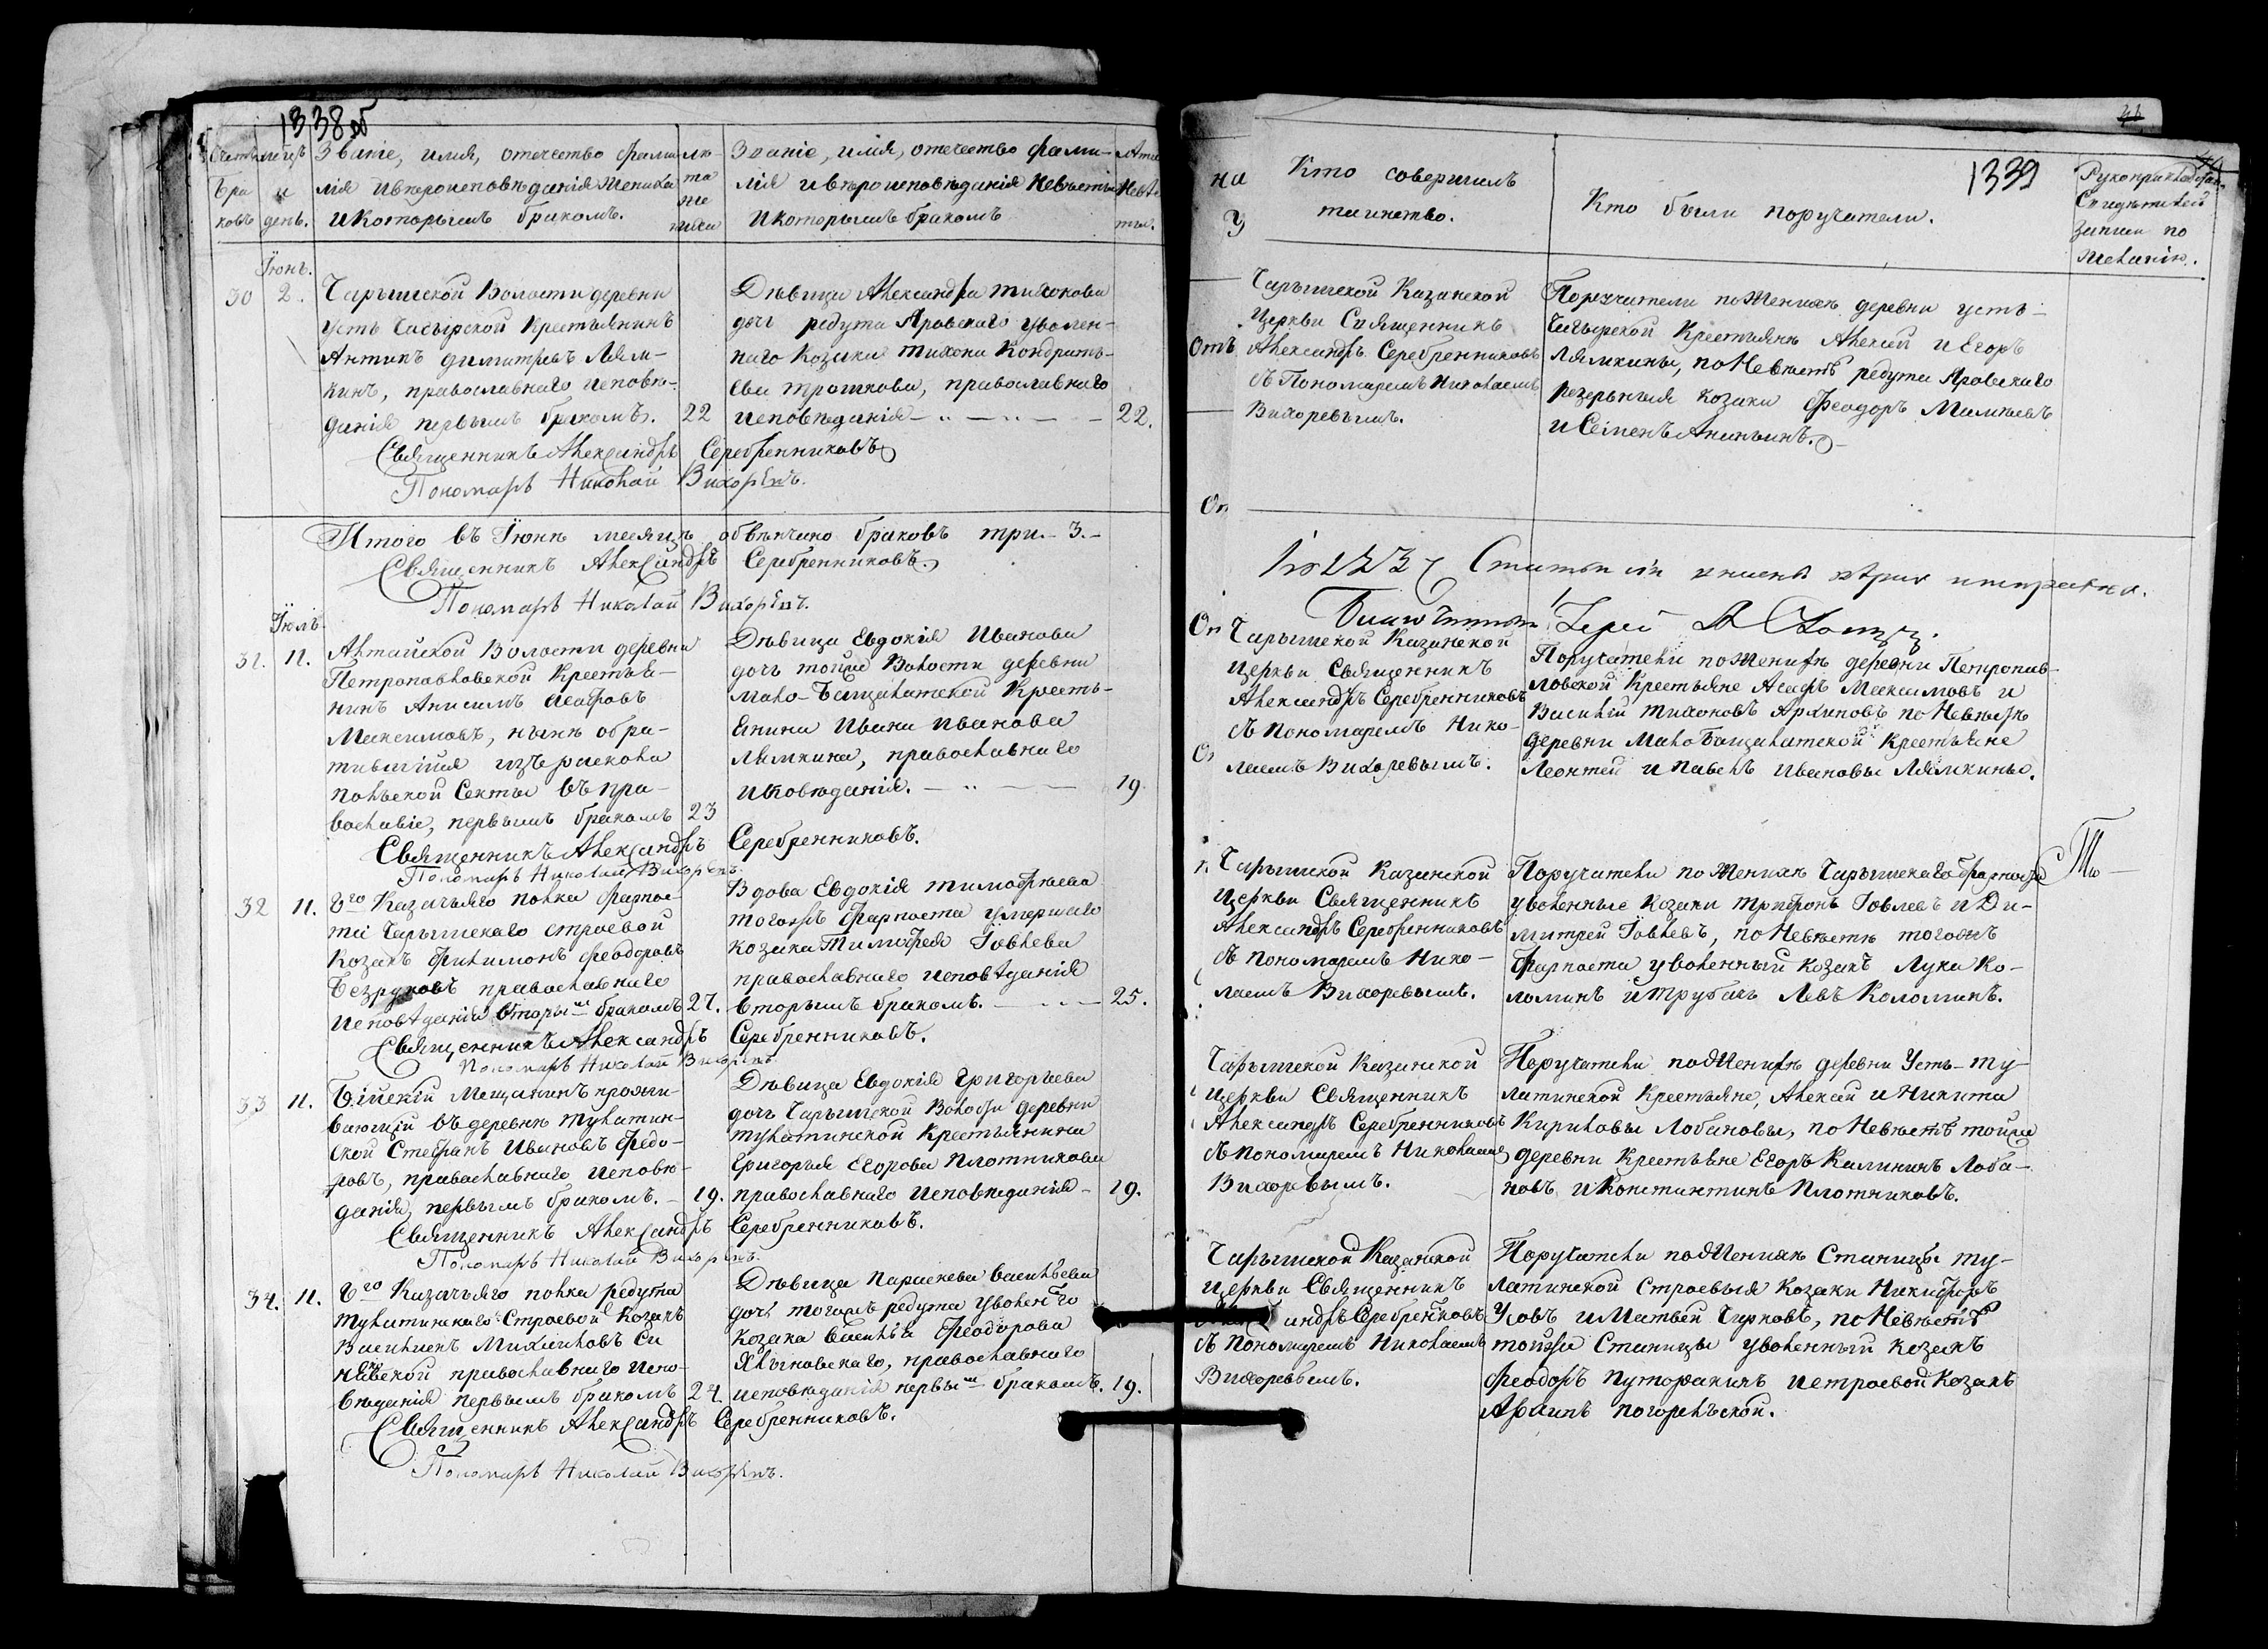 1338 об
Счетъ
бра
ковъ
и
день.
Званіе, имя, отчество фами
лія и вѣроисповѣданія жениха
и которымъ бракомъ.
лѣ
та
же
ниха
Званіе, имя, отчество фами-
лія и вѣроисповѣданія невѣсты
и которымъ бракомъ
лѣта
невѣс
ты.
Іюнь.
30
2.
Чарышской Волости деревни
Усть Чагырской Крестьянинъ
Антипъ Димитріевъ Лям-
кинъ, православнаго исповѣ-
данія первымъ бракомъ.
22
Дѣвица Александра Тихонова
дочь редута Яровскаго уволен-
наго Козака Тихона Кондрать-
ева Трошкова, православнаго
исповѣданія
22.
Священникъ Александръ Серебренниковъ
Пономарь Николай Вихоревъ.
Итого въ Іюнѣ месяцѣ обвѣнчано браковъ три. 3.
Священникъ Александръ Серебренниковъ.
Пономарь Николай Вихоревъ.
Іюль.
31.
11.
Алтайской Волости деревни
Петропавловской Крестья-
нинъ Анисимъ
Максимовъ, нынѣ обра-
тившійся изъ раскола
польской Секты въ пра-
вославіе, первымъ бракомъ
23
Дѣвица Евдокія Иванова
дочь тойже Волости деревни
Мало-Бащалатской Кресть-
янина Ивана Иванова
Лямкина, православнаго
исповѣданія.
19.
Священникъ Александръ Серебренниковъ.
Пономарь Николай Вихоревъ.
32
11.
Казачьяго полка Форпос-
та Чарышскаго строевой
Козакъ Филимонъ Феодоровъ
Безруковъ православнаго
исповѣданія вторы мъ бракомъ
27.
Вдова Евдокія Тимофѣева
тогожъ Форпоста умершаго
козака Тимофея Іовлева
православнаго исповѣданія
вторымъ бракомъ.
25.
Священникъ Александръ Серебренниковъ.
Пономарь Николай Вихоревъ.
33
11.
Бійскій Мещанинъ прожи-
вающій въ деревнѣ Тулатин-
ской Стефанъ Ивановъ Федо-
ровъ, православнаго исповѣ-
данія, первымъ бракомъ.
19.
Дѣвица Евдокія Григорьева
дочь Чарышской Волости деревни
Тулатинской Крестьянина
Григорья Егорова Плотникова
православнаго исповѣданія
19.
Священникъ Александръ Серебренниковъ.
Пономарь Николай Вихоревъ.
34.
11.
Казачьяго полка редута
Тулатинскаго Строевой Козакъ
Михаиловъ Си
православнаго испо-
вѣданія первымъ бракомъ
24.
Дѣвица Параскева Васильева
дочь тогожъ редута уволен го
козака Василья Феодорова
Хлыновскаго, православнаго
исповѣданія первы мъ бракомъ.
19.
Священникъ Александръ Серебренниковъ.
Пономарь Николай Вихоревъ.
на
у
отъ
Кто совершилъ
таинство.
Кто были поручатели.
1339
Рукоприкладство
Свидѣтелей
записи по
желанію.
Чарышской Казанской
Церкви Священникъ
Александръ Серебренниковъ
съ Пономаремъ Николаемъ
Вихоревымъ.
Поручатели по Женихѣ деревни Усть-
Чагырской Крестьянѣ Алексѣй и Егоръ
Лямкины, по Невѣстѣ редута Яровскаго
резервныя козаки Феодоръ
и Семенъ Ананьинъ.
Чарышской Казанской
Церкви Священникъ
Александръ Серебренниковъ
съ Пономаремъ Нико-
лаемъ Вихоревымъ.
Поручатели по Женихѣ деревни Петропав-
ловской Крестьяне Максимовъ и
Василій Тихоновъ Архиповъ по Невѣстѣ
деревни Мало Бащалатской Крестьяне
Леонтей и Павелъ Ивановы Лямкины.
Чарышской Казанской
Церкви Священникъ
Александръ Серебренниковъ
съ Пономаремъ Нико-
лаемъ Вихоревымъ.
Поручатели по Женихѣ Чарышскаго Форпоста
уволенные Козаки Трифонъ Іовлевъ и Ди-
митрей Іовлевъ, по Невѣстѣ тогожъ
Форпоста уволенный козакъ Лука Ко-
ломинъ и Трубачъ Левъ Коломинъ.
Чарышской Казанской
Церкви Священникъ
Александръ Серебренниковъ
съ Пономаремъ Николаемъ
Вихоревымъ.
Поручатели по Женихѣ деревни Усть-Ту-
латинской Крестьяне, Алексѣй и Никита
Кириловы Лобановы, по Невѣстѣ тойже
деревни Крестьяне Егоръ Калининъ Лоба-
новъ и Константинъ Плотниковъ.
Чарышской Казанской
Церкви Священникъ
андръ Серебренниковъ
съ Пономаремъ Николаемъ
Вихоревымъ.
Поручатели по Женихѣ Станицы Ту-
латинской Строевыя Козаки Никифоръ
Усовъ и Матвѣй Чирковъ, по Невѣстѣ
тойже Станицы уволенный козакъ
Феодоръ и строевой козакъ
Погорѣльской.